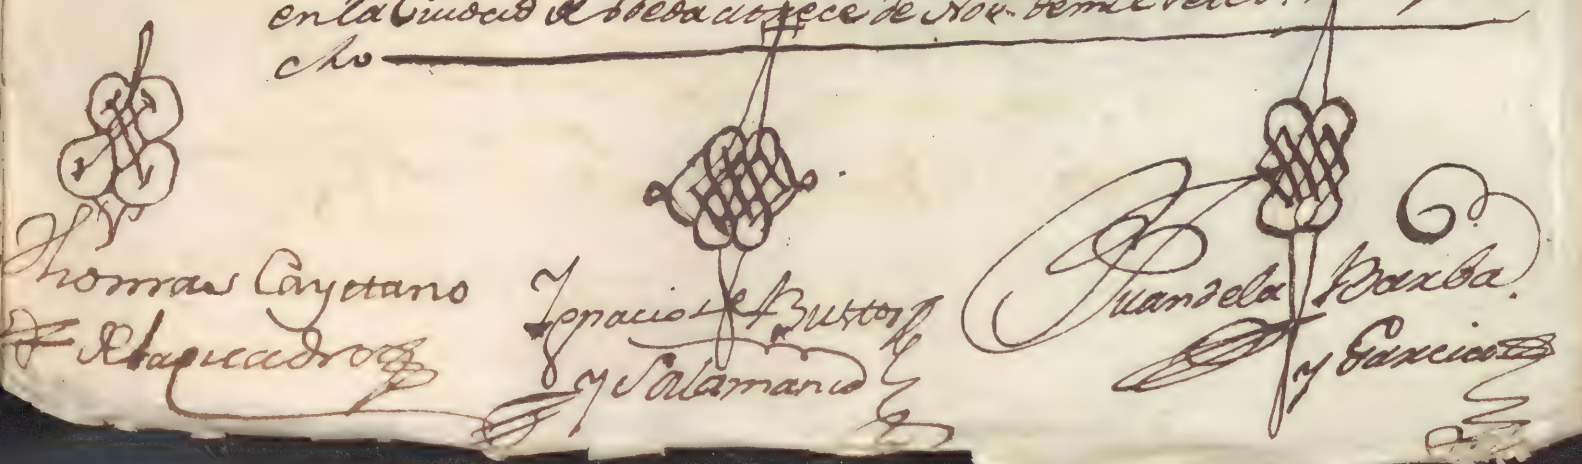 en la Ciudad de Vbeda a trece de Nov.
cho
Thomas Cayetano
de la quadra
Ignacio de Bustos
y Salamanca
Juan de la Barba
y Garcia